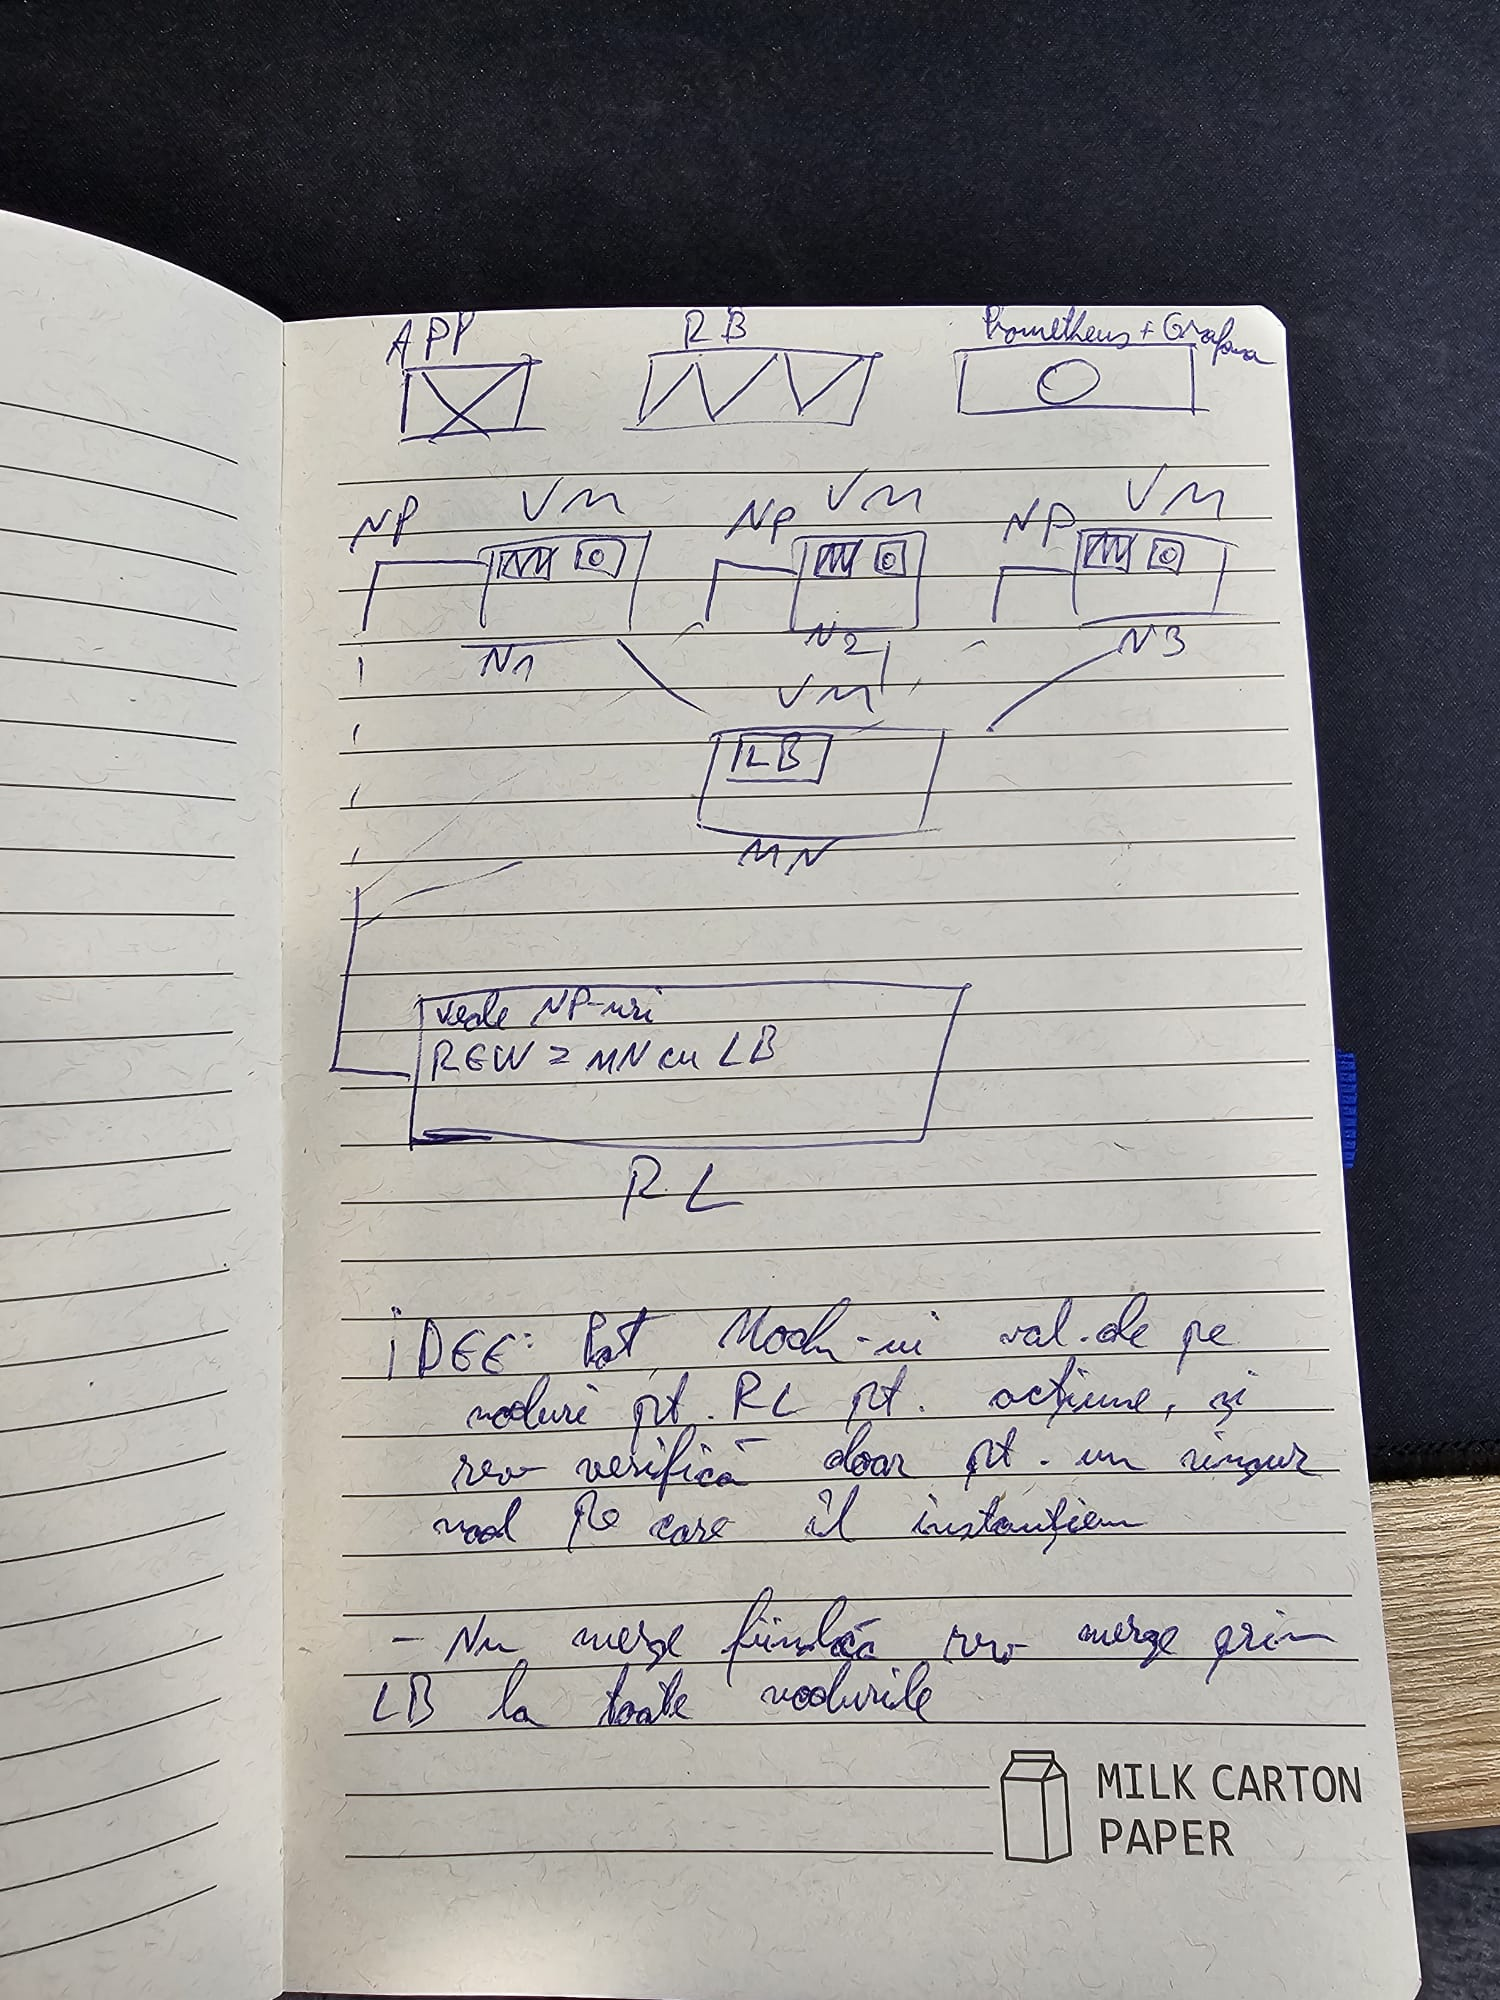 APP RB Prometheus + Grafana
NP VM NP VM NP VM
N1 N2 N3
VM
LB
MN
vede NP-uri
REW = MN cu LB
RL
IDEE: Pot val. de pe
noduri pt. RL pt. acțiune, și
rew verifică doar pt. un singur
nod pe care îl instanțiem
- Nu merge fiindcă rew merge prin
LB la toate nodurile
MILK CARTON
PAPER